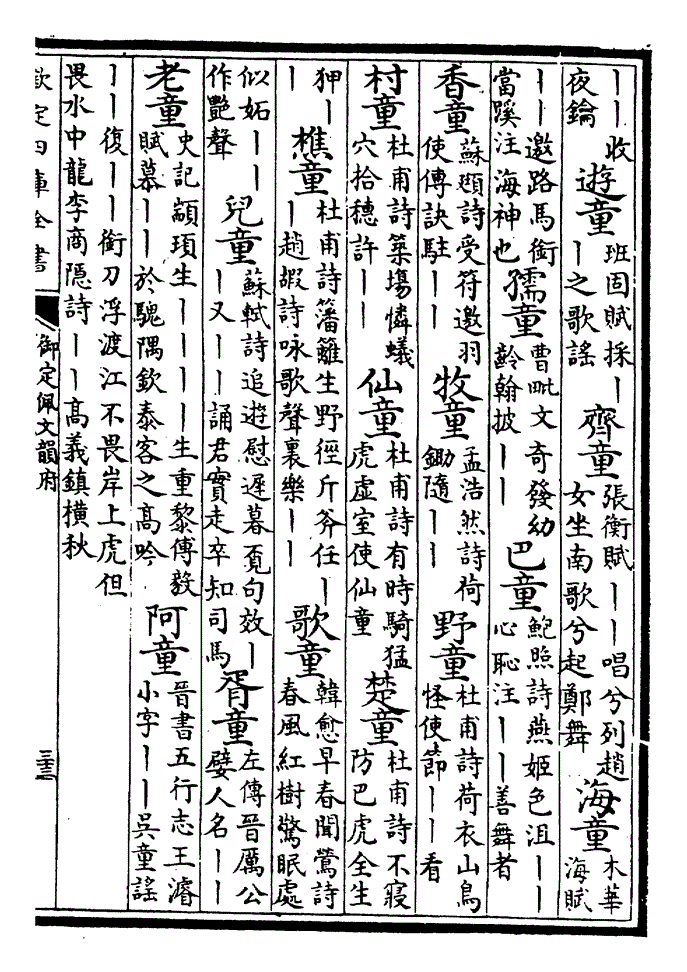 ｜｜收夜鑰 遊童 班固賦採｜｜之歌謠 齊童 張衡賦｜｜唱兮列趙女坐南歌兮起鄭舞 海童 木華海賦
｜｜邀路馬銜當蹊注海神也 孺童 曹毗文奇發幼齡翰披｜｜ 巴童 鮑照詩燕姬色沮｜｜心恥注｜｜善舞者
香童 蘇頲詩受符邀羽使傳訣駐｜｜ 牧童 孟浩然詩荷鋤隨｜｜ 野童 杜甫詩荷衣山鳥怪使節｜｜看
村童 杜甫詩築場憐蟻穴拾穗許｜｜ 仙童 杜甫詩有時騎猛虎虛室使仙童 楚童 杜甫詩不寢防巴虎全生
狎｜｜ 樵童 杜甫詩籓籬生野徑斤斧任｜｜趙嘏詩咏歌聲裏樂｜｜ 歌童 韓愈早春聞鶯詩春風紅樹驚眠處
似妬｜｜作艷聲 兒童 蘇軾詩追遊慰遲暮覓句效｜｜又｜｜誦君實走卒知司馬 胥童 左傳晉厲公嬖人名｜｜
老童 史記顓頊生｜｜｜｜生重黎傅毅賦慕｜｜於騩隅欽泰客之高吟 阿童 晉書五行志王濬小字｜｜吳童謠
｜｜復｜｜銜刀浮渡江不畏岸上虎但畏水中龍李商隱詩｜｜高義鎮橫秋
欽定四庫全書 御定佩文韻府